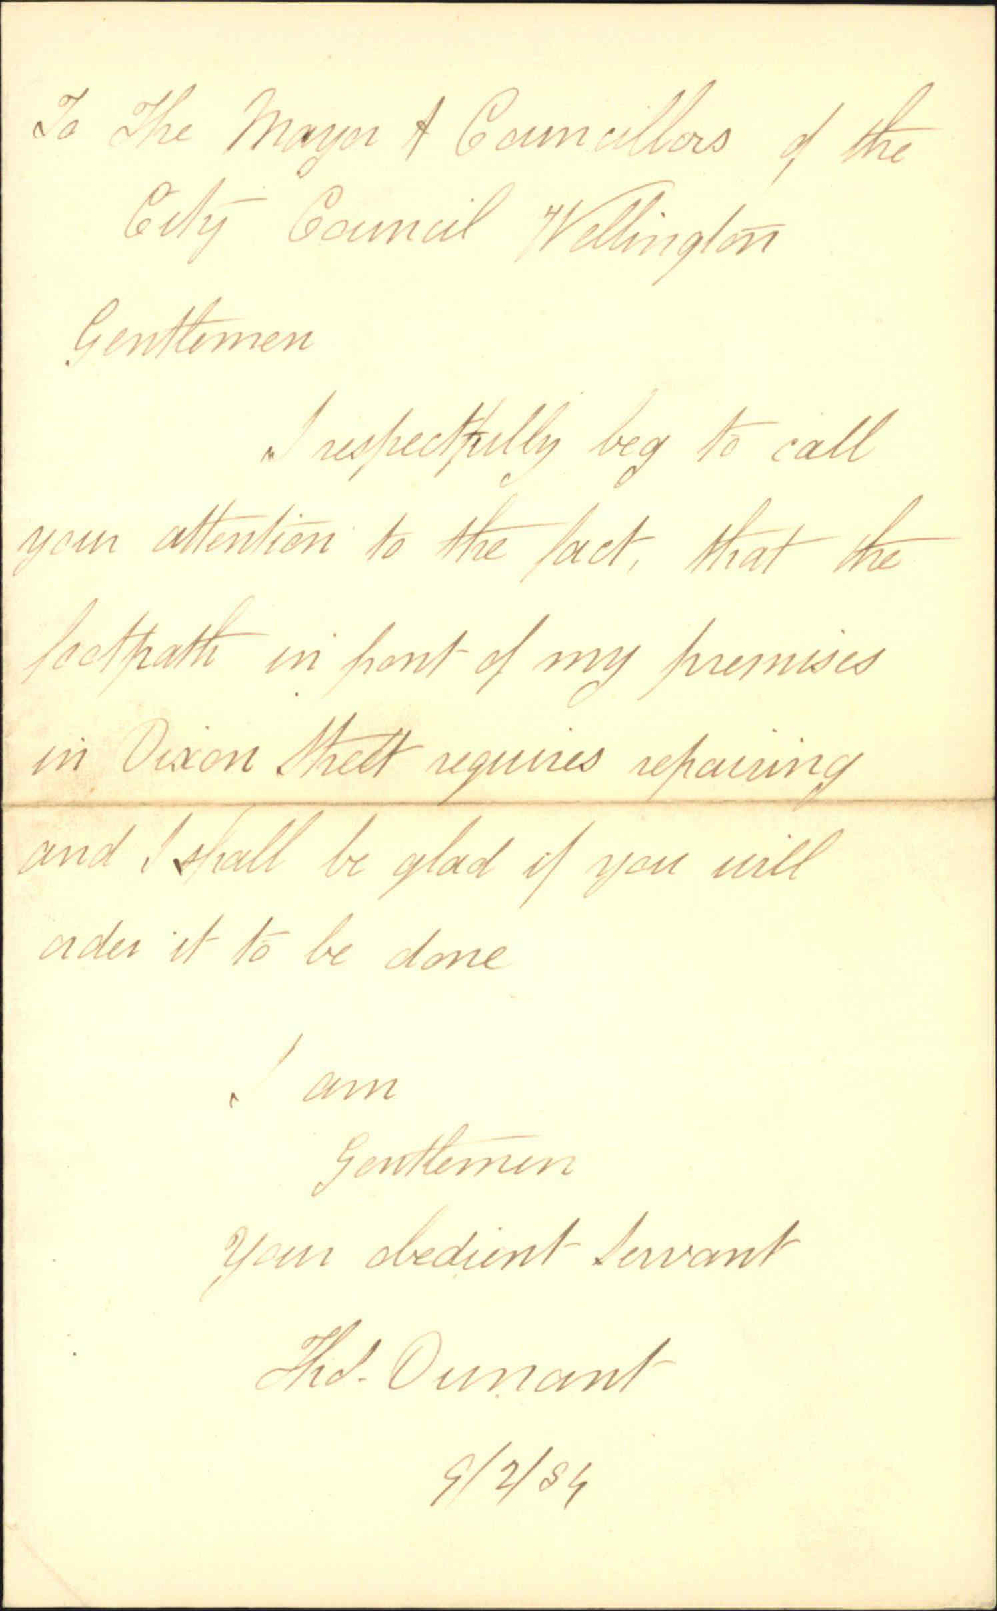 To The Mayor & Councillors of the
City Council Wellington
Gentlemen
I respectfully beg to call
your attention to the fact, that the
footpath in front of my premises
in Dixon Street requires repairing
and I shall be glad if you will
order it to be done
I am
Gentlemen
Your obedient Servant
Thos. Dunant
9/2/84